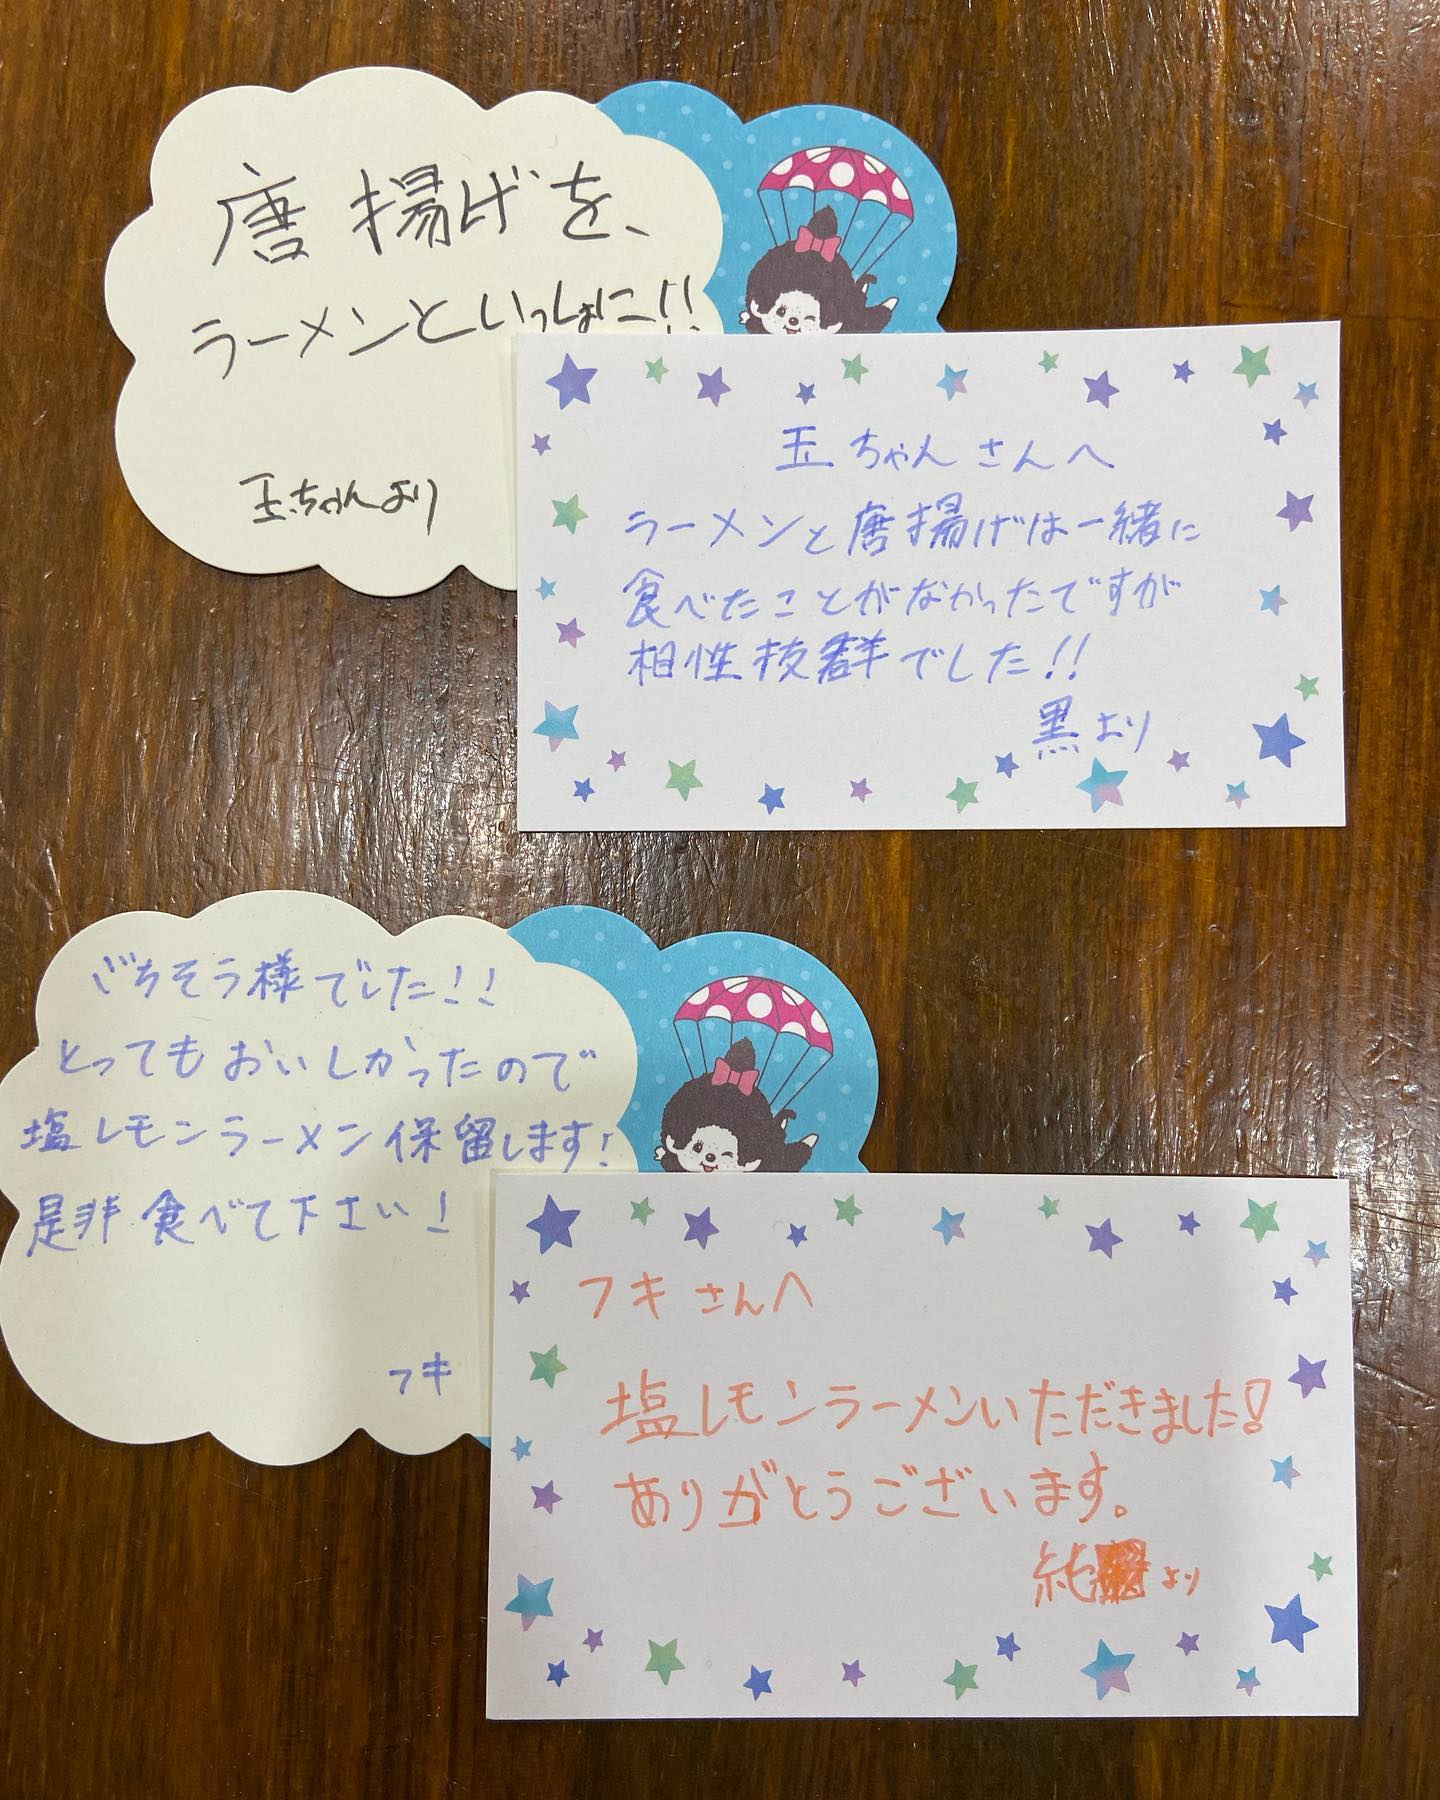 唐揚げを、
ラーメンといっしょに!!
玉ちゃんより
玉ちゃんさんへ
ラーメンと唐揚げは一緒に
食べたことがなかったですが
相性抜群でした!!
黒より
ごちそう様でした!!
とってもおいしかったので
塩レモンラーメン保留します!
是非食べて下さい!
フキ
フキさんへ
塩レモンラーメンいただきました!
ありがとうございます。
純 より